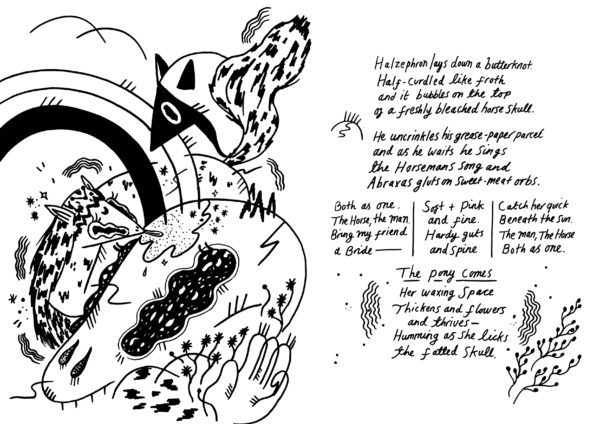 Halzephron lays down a butterknot.
Half-curdled like froth
and it bubbles on the top
of a freshly bleached horse skull.
He uncrinkles his grease-paper parcel
and as he waits he sings
the Horsemans song and
Abraxas gluts on sweet-meat orbs.
Both as one.
The Horse, the man.
Bring my friend
a Bride —
Soft + Pink
and fine.
Hardy guts
and spine
Catch her quick
Beneath the sun.
The man, The Horse
Both as one.
The pony comes
Her waxing space
Thickens and flowers
and thrives —
Humming as she licks
the fatted skull.